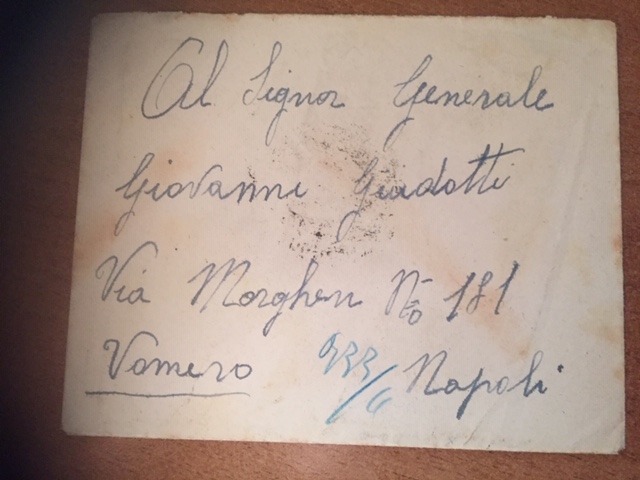 Al Signor Generale
Giovanni Guidotti
Via Morghen No 181
Vomero Napoli